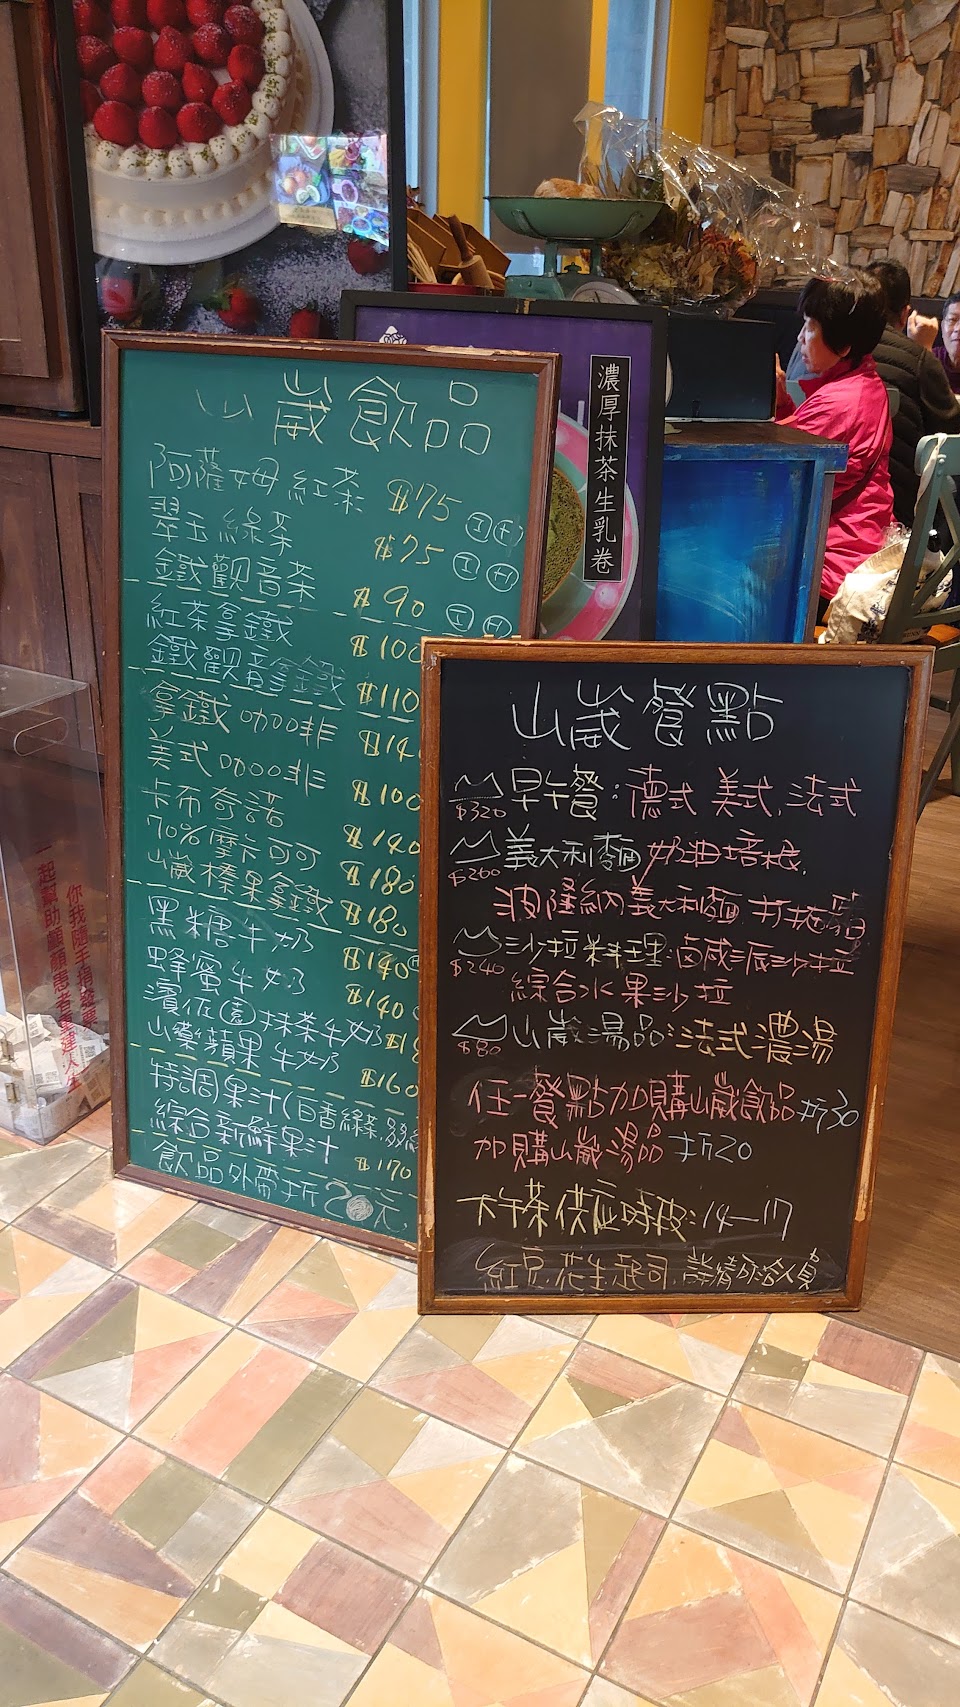 山崴飲品
阿薩姆紅茶 $75 I H
翠玉綠茶 $75 I H
鐵觀音茶 $90 I H
紅茶拿鐵 $100
鐵觀音拿鐵 $110
拿鐵咖啡 $14
美式咖啡 $100
卡布奇諾 $140
70%摩卡可可 $180
山崴榛果拿鐵 $180
黑糖牛奶 $140
蜂蜜牛奶 $140
濱佐園抹茶牛奶 $18
山藥蘋果牛奶 $160
特調果汁(百香綠茶,
綜合新鮮果汁 $170
飲品外帶折20元
濃厚抹茶生乳卷
山崴餐點
$320 早午餐:德式 美式,法式
$260 義大利麵 奶油培根,
波隆納義大利麵
$240 沙拉料理:鹹派沙拉
綜合水果沙拉
$80 山崴湯品:法式濃湯
任一餐點加購山崴飲品折30
加購山崴湯品折20
下午茶供應時段:14-17
紅豆.花生.起司.詳情洽人員
你我隨手捐發票
一起幫助顱顏患者